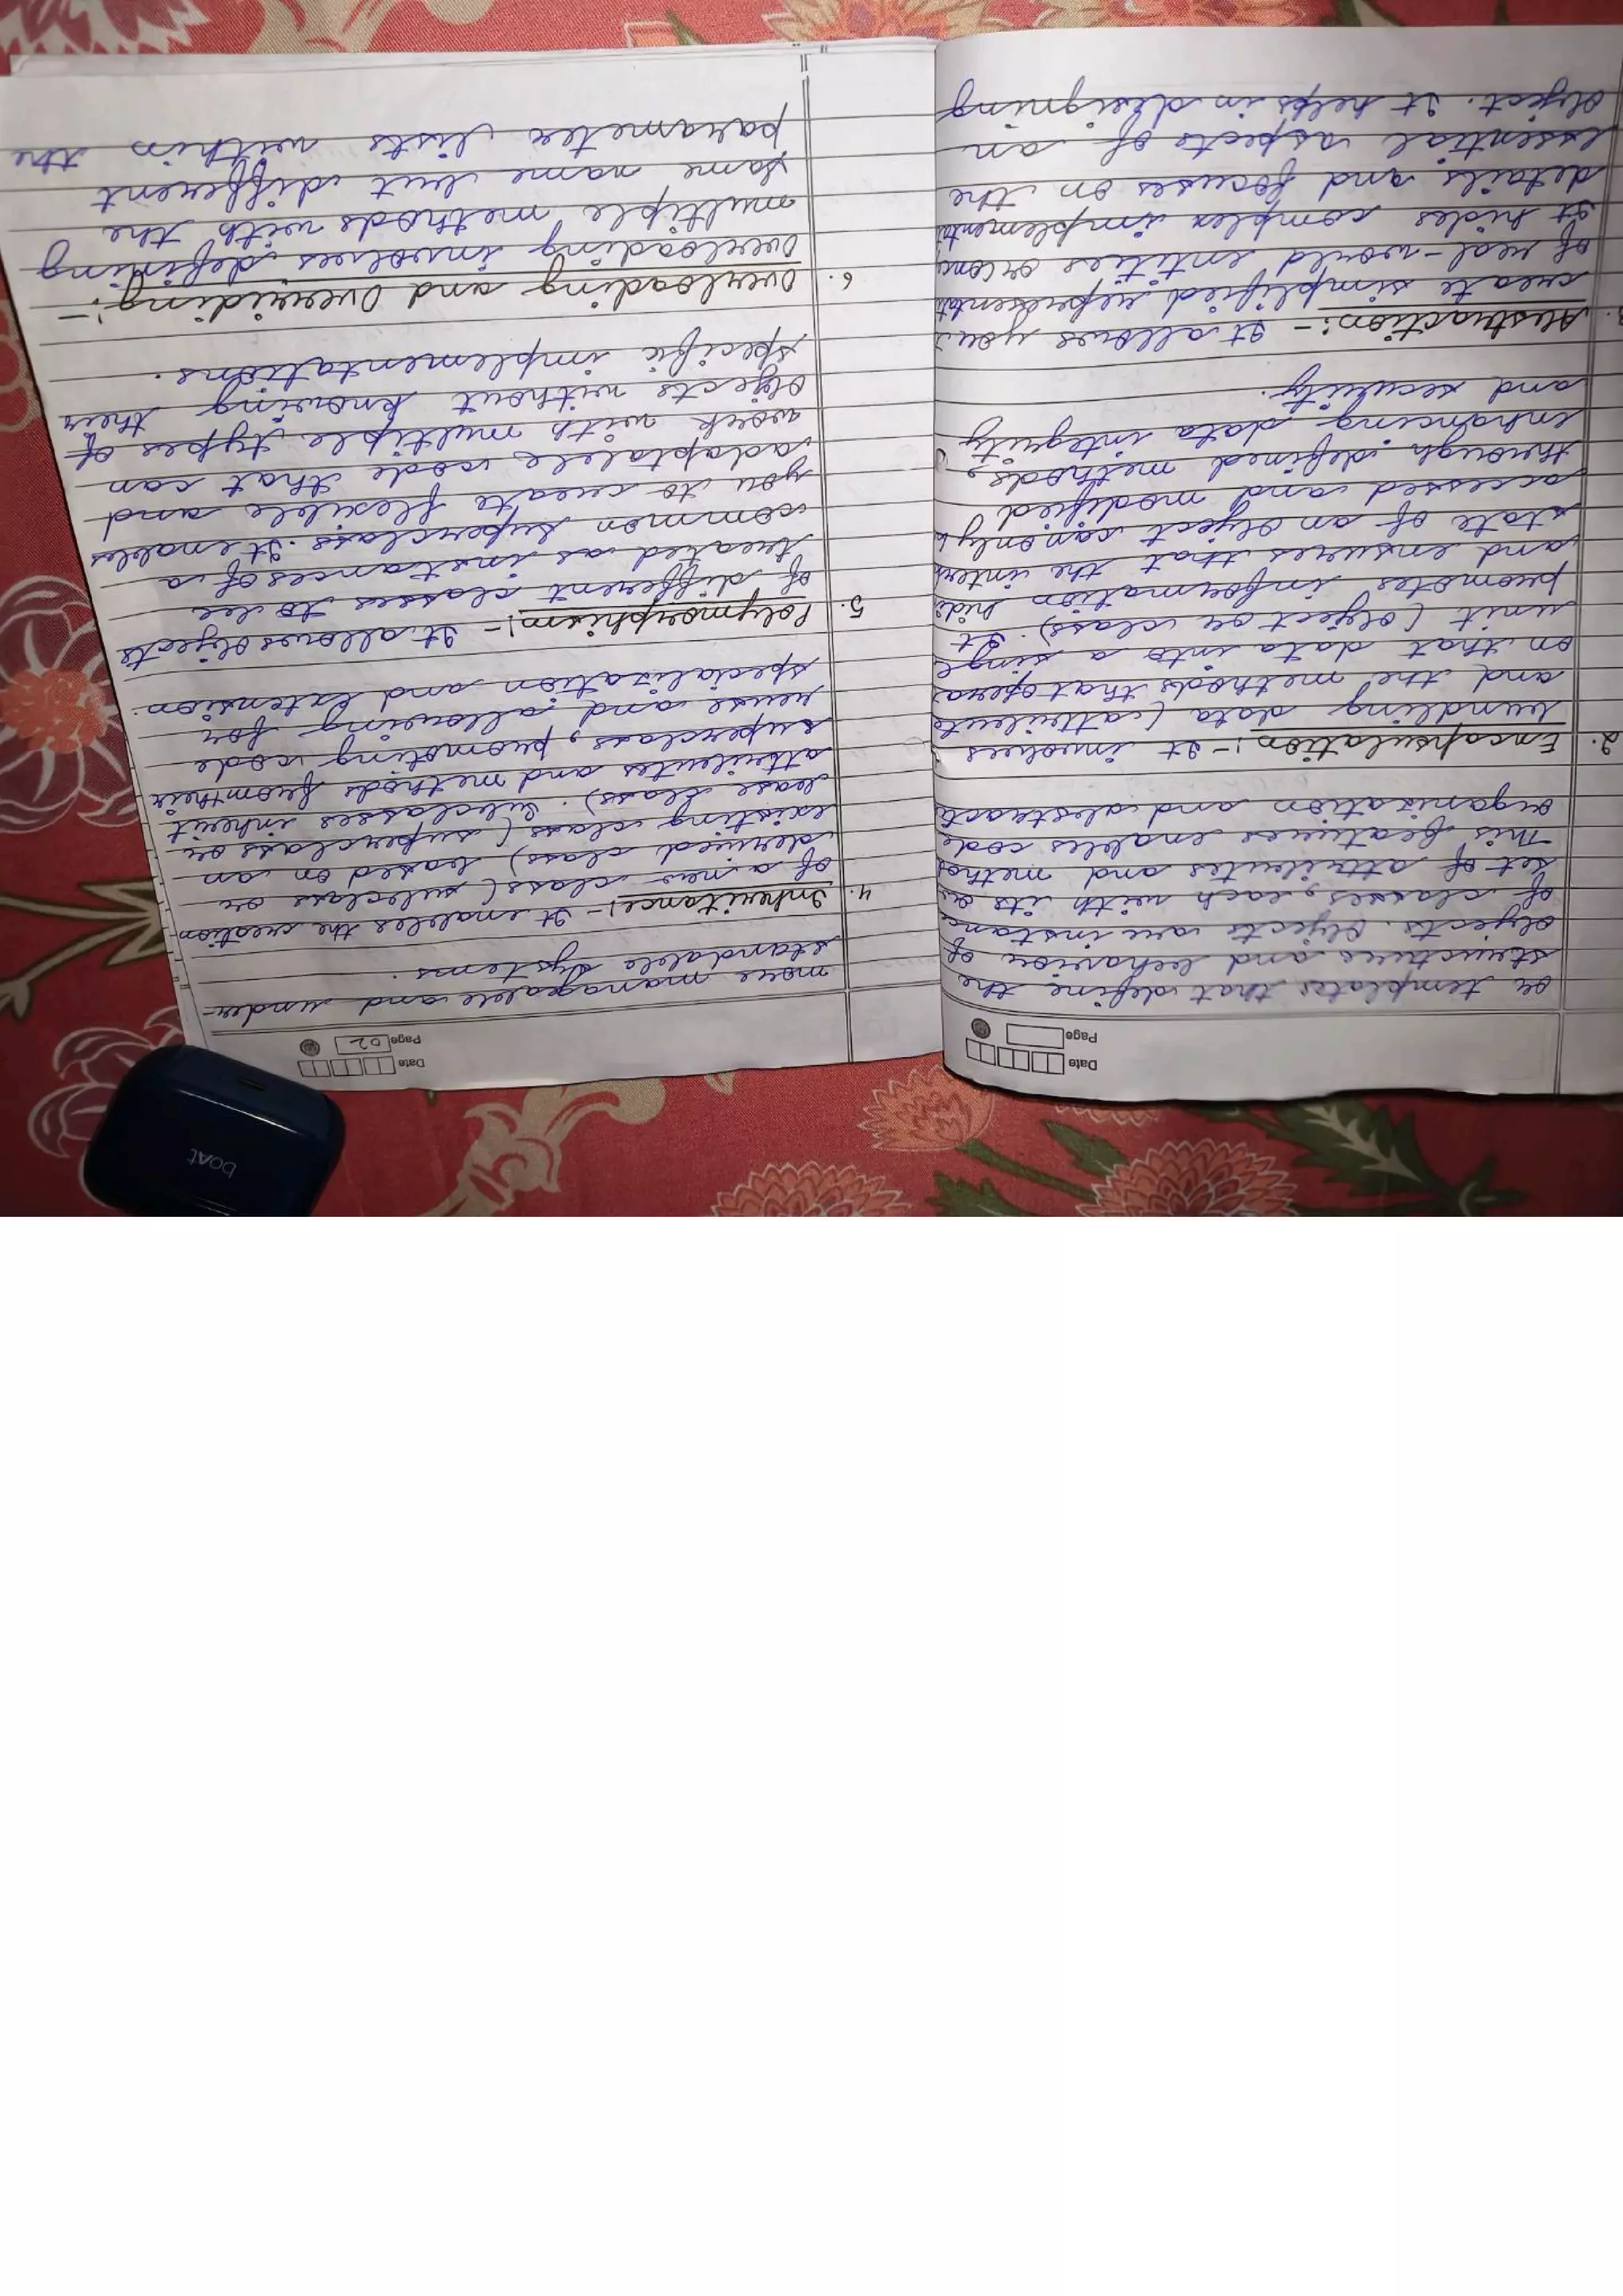 Date
Page
or templates that define the
structure and behavior of
objects. Objects are instanc
of classes, each with its o
set of attributes and method
This features enables code
organization and abstract
2. Encapsulation:- It involves
bundling data (attribute
and the methods that opera
on that data into a singl
unit (object or class). It
promotes information hidi
and ensures that the intern
state of an object can only b
accessed and modified
through defined methods,
enhancing data integrity
and security.
Abstraction:- It allows you
create simplified representati
of real-world entities or con
It hides complex implementa
details and focuses on the
essential aspects of an
object. It helps in designing
Date
Page 02
more manageable and under-
standable systems.
4. Inheritance:- It enables the creation
of a new class (subclass or
derived class) based on an
existing class (superclass or
base class). Subclasses inherit
attributes and methods from their
superclass, promoting code
reuse and allowing for
specialization and extension.
5. Polymorphism:- It allows objects
of different classes to be
treated as instances of a
common superclass. It enables
you to create flexible and
adaptable code that can
work with multiple types of
objects without knowing their
specific implementations.
6. Overloading and Overriding:-
Overloading involves defining
multiple methods with the
same name but different
parameter lists within the
boAt